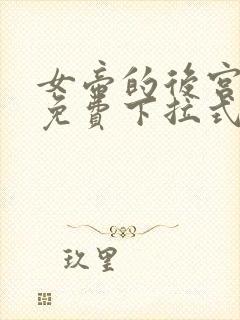 女帝的後宮
免費下拉式
玖里